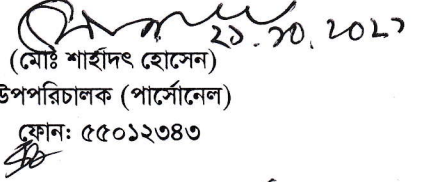 ২১.১০.২০২১
(মোঃ শাহাদৎ হোসেন)
উপপরিচালক (পার্সোনেল)
ফোনঃ ৫৫০১২৩৪৩